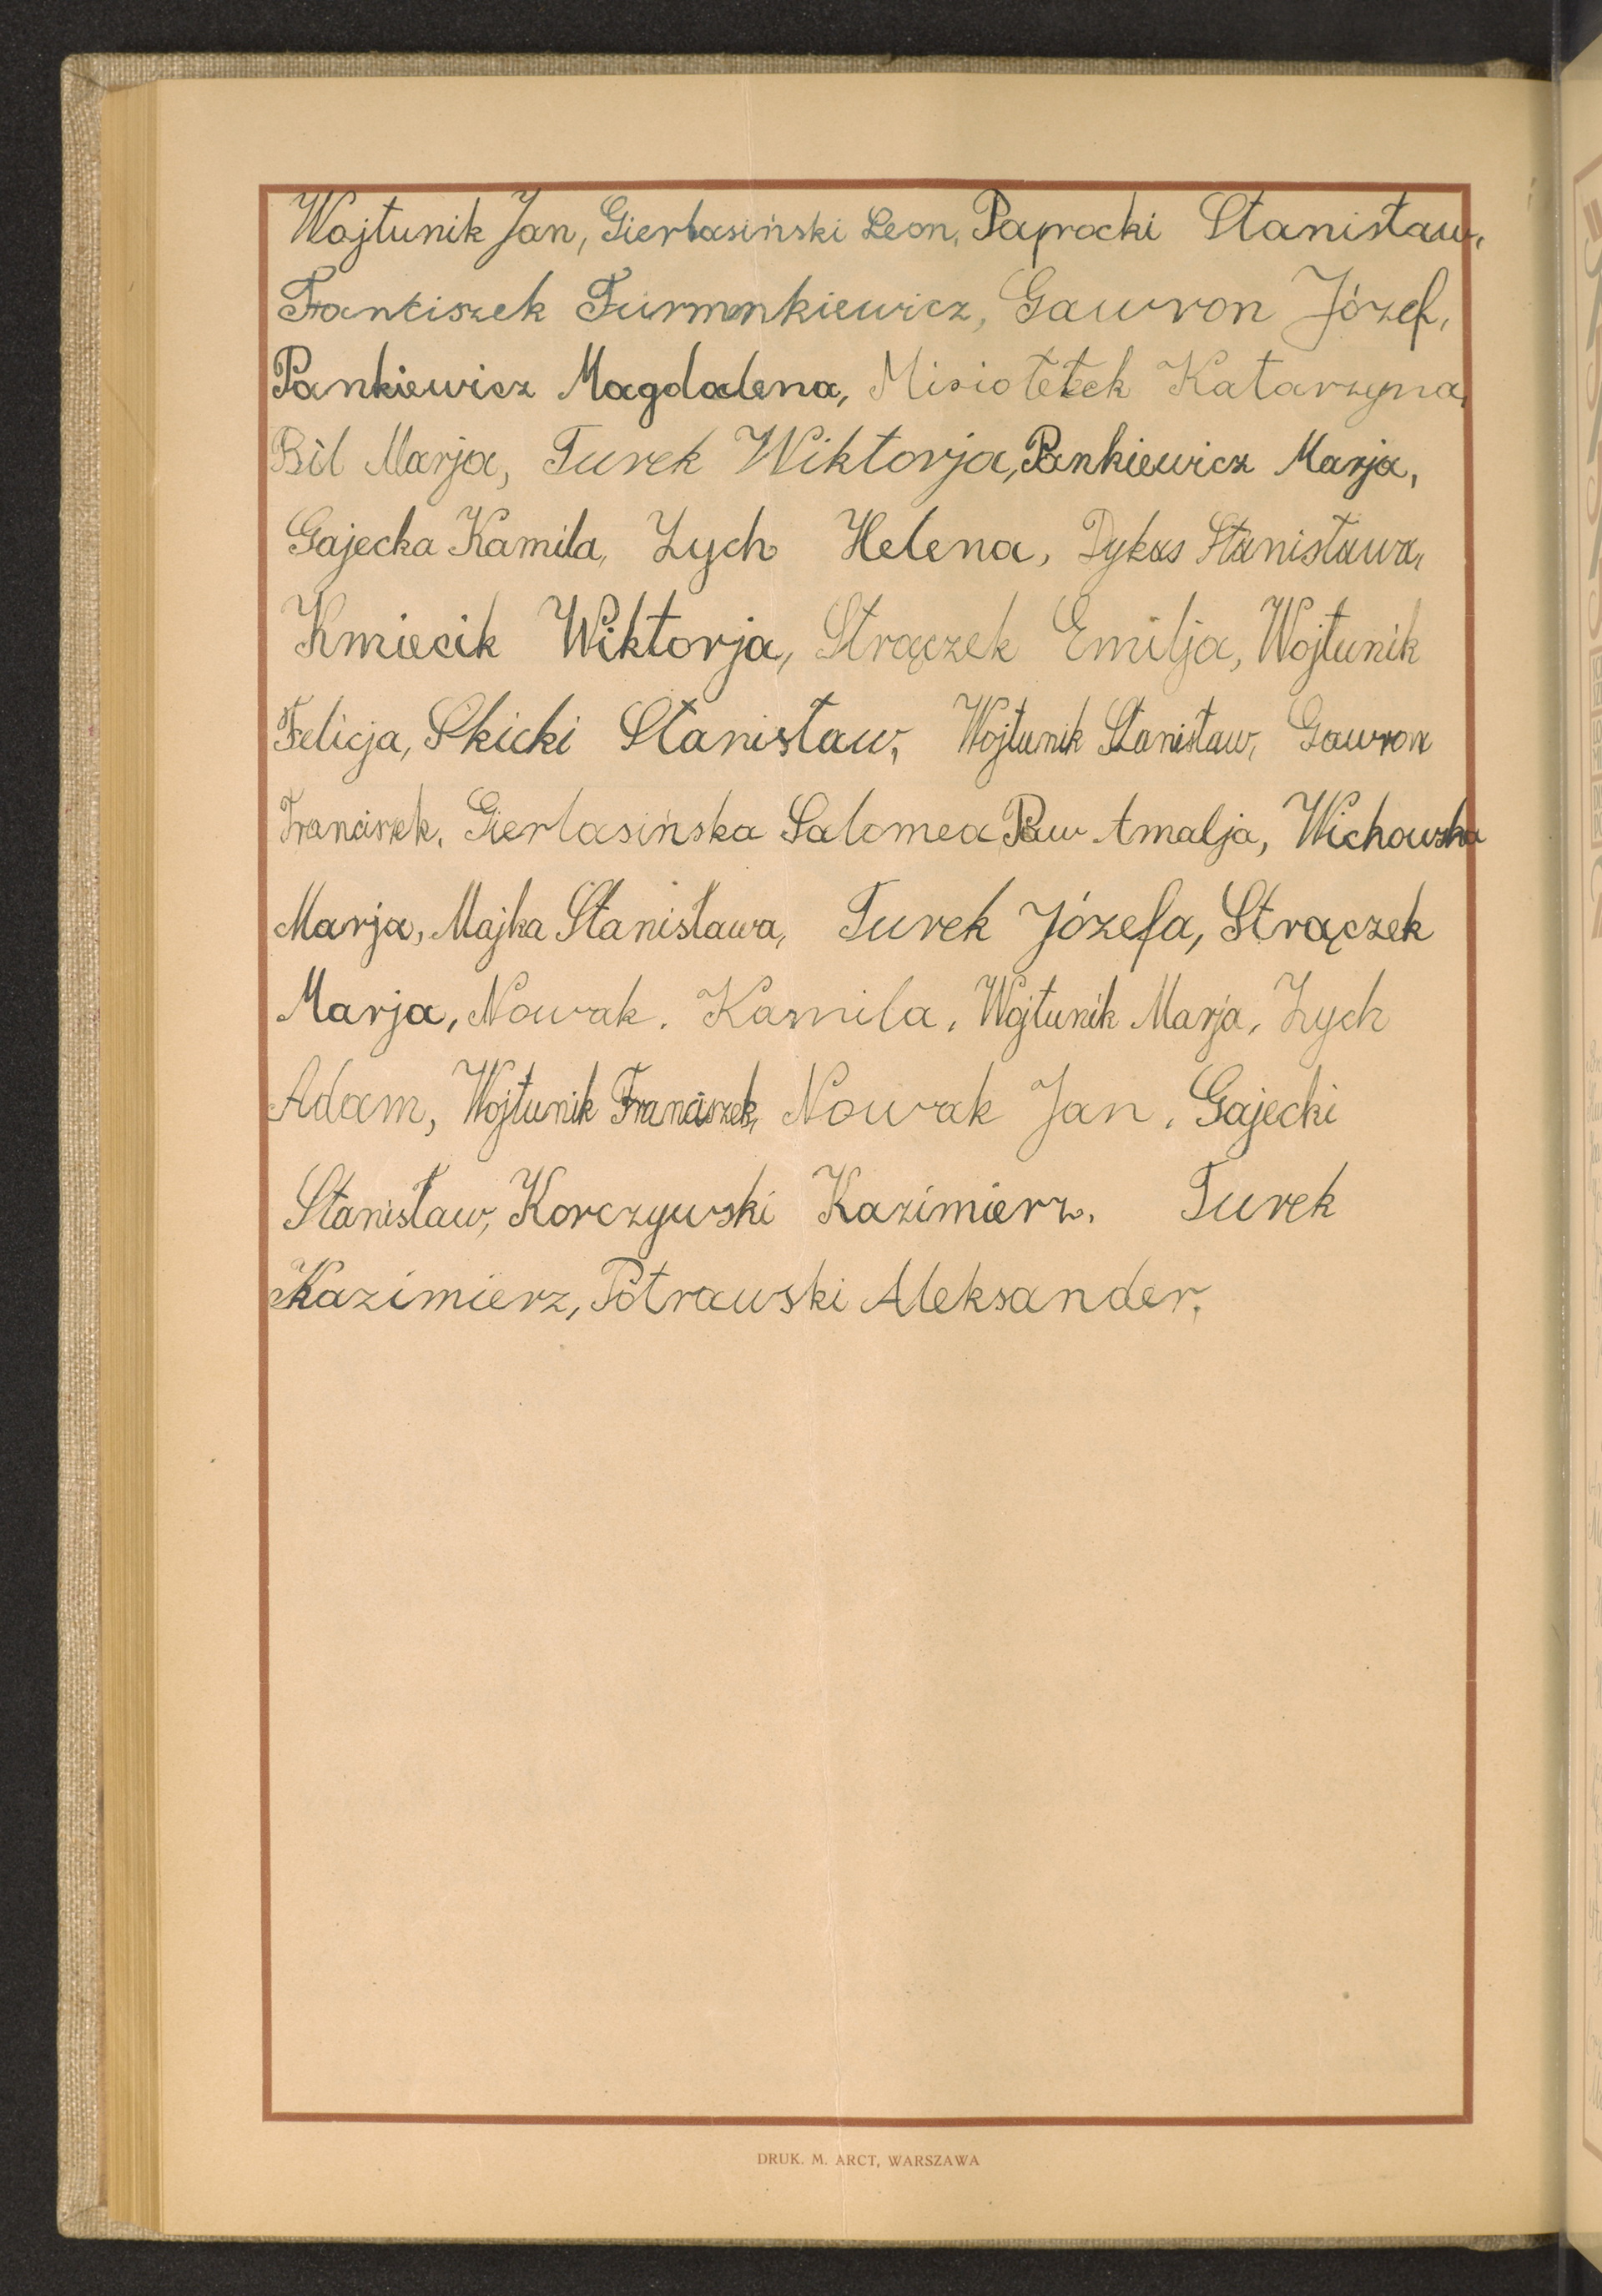 Wojtunik Jan, Gierłasiński Leon, Paprocki Stanisław,
Franciszek Furmankiewicz, Gawron Józef,
Pankiewicz Magdalena, Misiotetek Katarzyna,
Bil Marja, Turek Wiktorja, Pankiewicz Marja,
Gajecka Kamila, Zych Helena, Dykas Stanisława,
Kmiecik Wiktorja, Strączek Emilja, Wojtunik
Felicja, Skicki Stanisław, Wojtunik Stanisław, Gawron
Franciszek, Gierlasińska Salomea Paw Amalja, Wichowska
Marja, Majka Stanisława, Turek Józefa, Strączek
Marja, Nowak. Kamila, Wojtunik Marja, Zych
Adam, Wojtunik Franciszek, Nowak Jan, Gajecki
Stanisław, Korczywski Kazimierz. Turek
Kazimierz, Potrawski Aleksander.
DRUK. M. ARCT, WARSZAWA